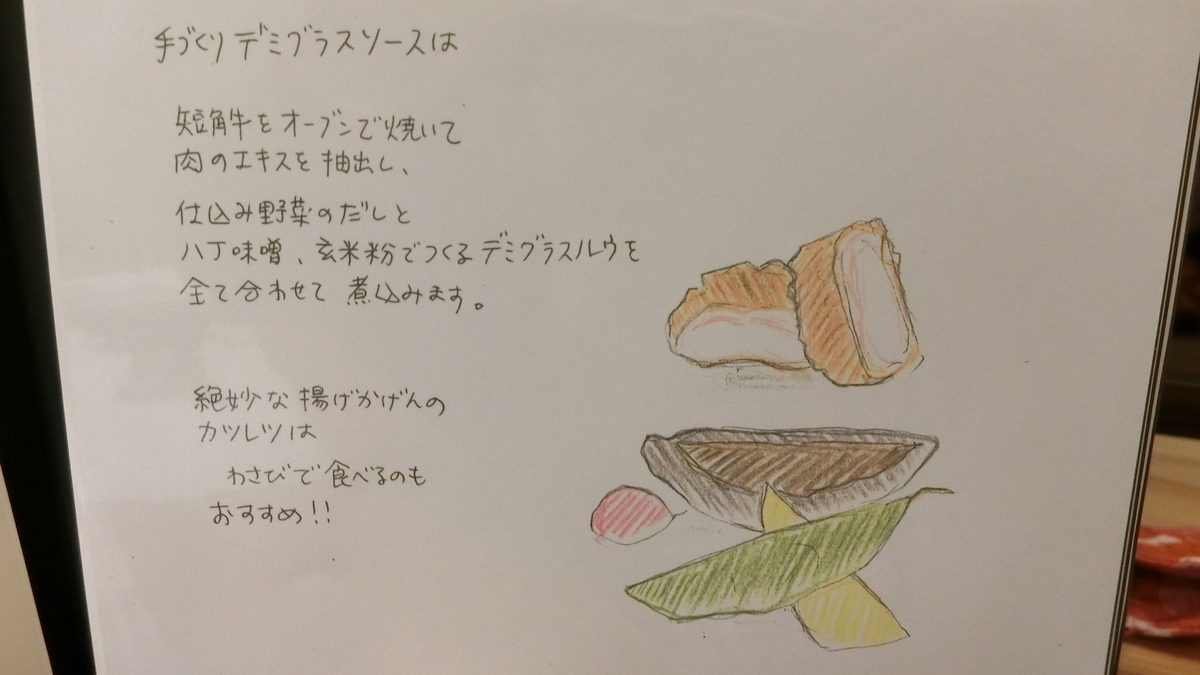 手づくりデミグラスソースは
短角牛をオーブンで焼いて
肉のエキスを抽出し、
仕込み野菜のだしと
八丁味噌、玄米粉でつくるデミグラスルウを
全て合わせて煮込みます。
絶妙な揚げかげんの
カツレツは
わさびで食べるのも
おすすめ!!